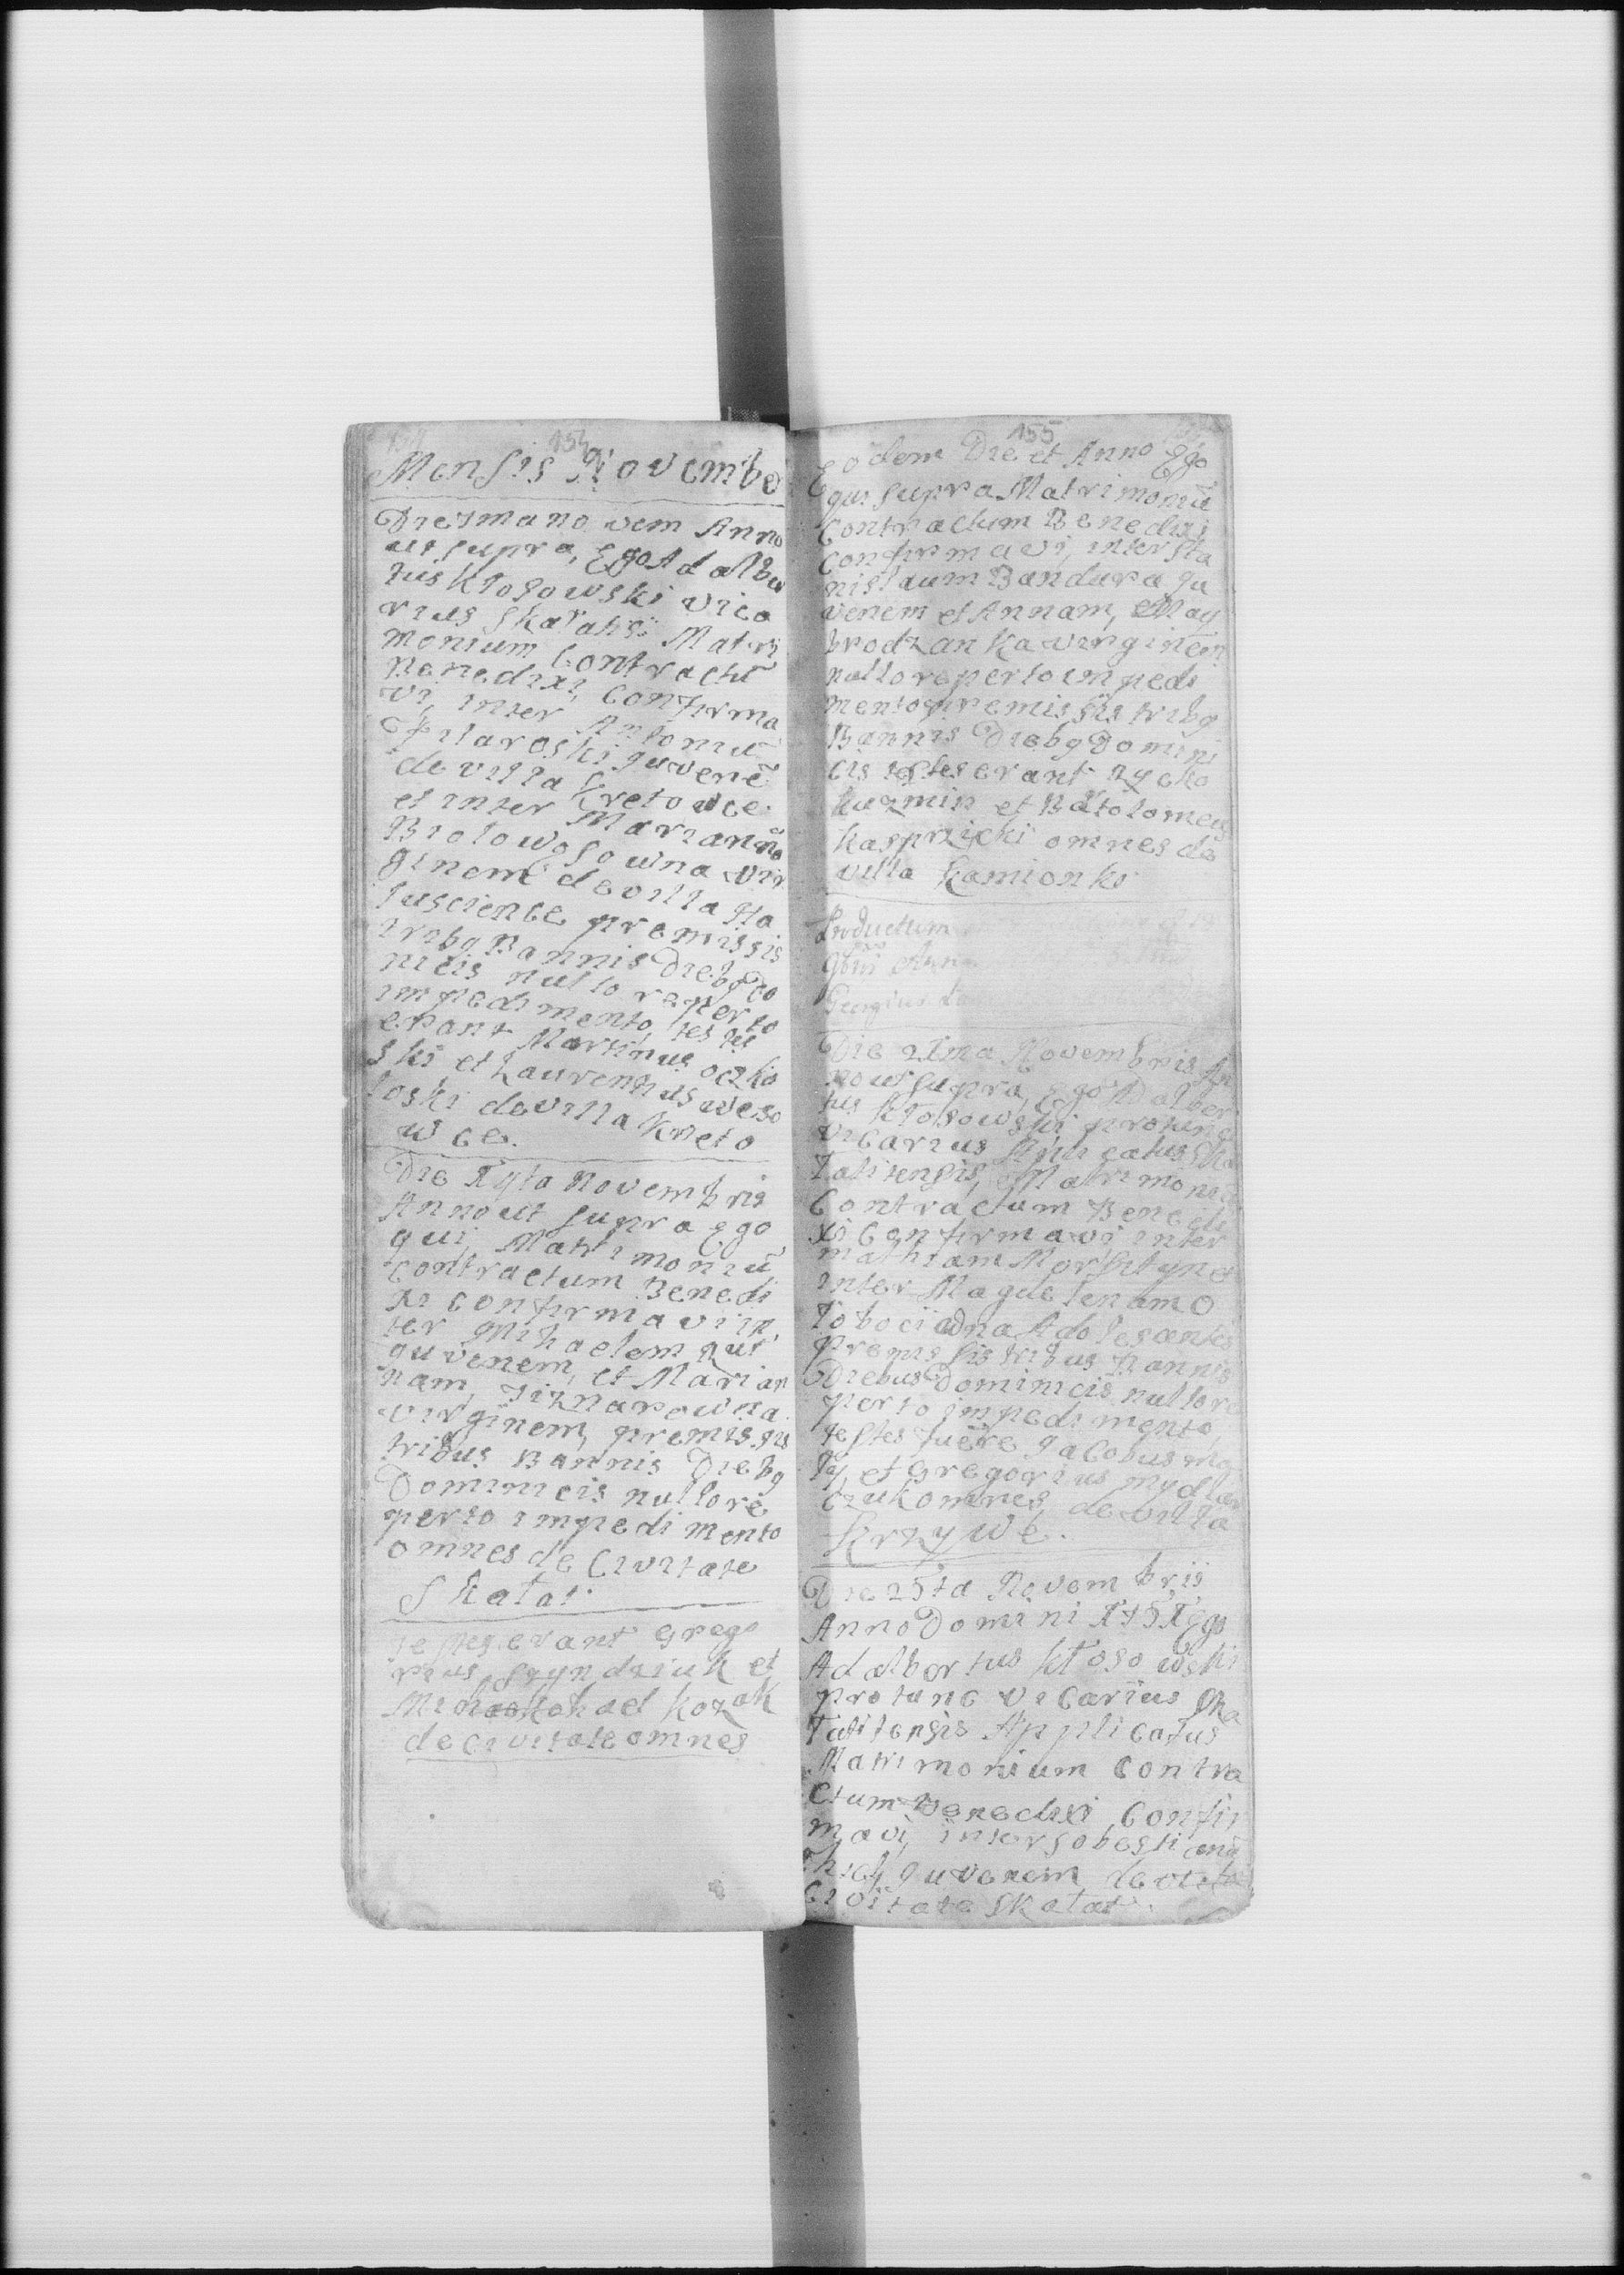 154
Mensis Novembe
Die 1ma novem Anno
ut supra, Ego Adalber
tus Kłosowski vica
rius Skałatis: Matri
monium Contractũ
Benedixi, Confirma
vi, inter Antoniũ
Filaroski juvenẽ
de villa Kretowce
et inter Mariannã
Biołowosowna vir
ginem de villa Ho
łuscience premissis
tribq Bannis Diebq Do
nicis nullo reperto
impedimento, testes
erant Martinus oczko
ski et Laurentius weso
łoski de villa Kreto
wce.
Die Xyta Novembris
Anno ut supra Ego
qui, Matrimoniũ
Contractum Benedi
xi confirmavi in
ter Mihaelem
juvenem, et Marian
nam,
virginem, premissis
tribus Bannis Diebq
Dominicis nullo re
perto impedimento
omnes de Civitate
Skałat.
testes erant Grego
rius Szyndziuk et
Kozak
de civitate omnes
155
Eodem Die et Anno Ego
qui supra Matrimoniũ
Contractum Benedixi
Confirmavi, inter Sta
nislaum Bandura ju
venem et Annam, May
brodzanka virginem
nullo reperto impedi
mento premissis tribq
Bannis Diebq Domini
cis testes erant
Kuzmin et Bartolomeus
Kasprzicki omnes de
villa Kamionki
Productum
Georgius
Die 21ma Novembris An
no ut supra, Ego Adalber
tus Kłosowski protunc
vicarius Aplicatus Ska
łatitensis, Matrimoniũ
Contractum Benedi
xi Confirmavi inter
mathiam Morsztyn et
inter Magdelenam O
premissis tribus Bannis
Diebus Dominicis nullo re
perto impedimento,
testes fuere Jacobus ma
ły, et Gregorius mydlar
czuk omnes, de villa
Krzywe.
Die 25ta Novembris
Anno Domini Ego
Adalbertus Kłosowski
protunc vicarius Ska
łatitensis Applicatus
Matrimonium Contra
ctum Benedixi Confir
mavi, inter Sobestianũ
juvenem de
Civitate Skałat.